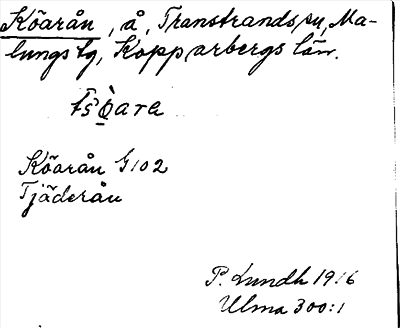 Köarån, å, Transtrands sn, Ma-
lungs tg, Kopparbergs län.
Köarån G102
Tjäderån
P. Lundh 1916
Ulma 300:1